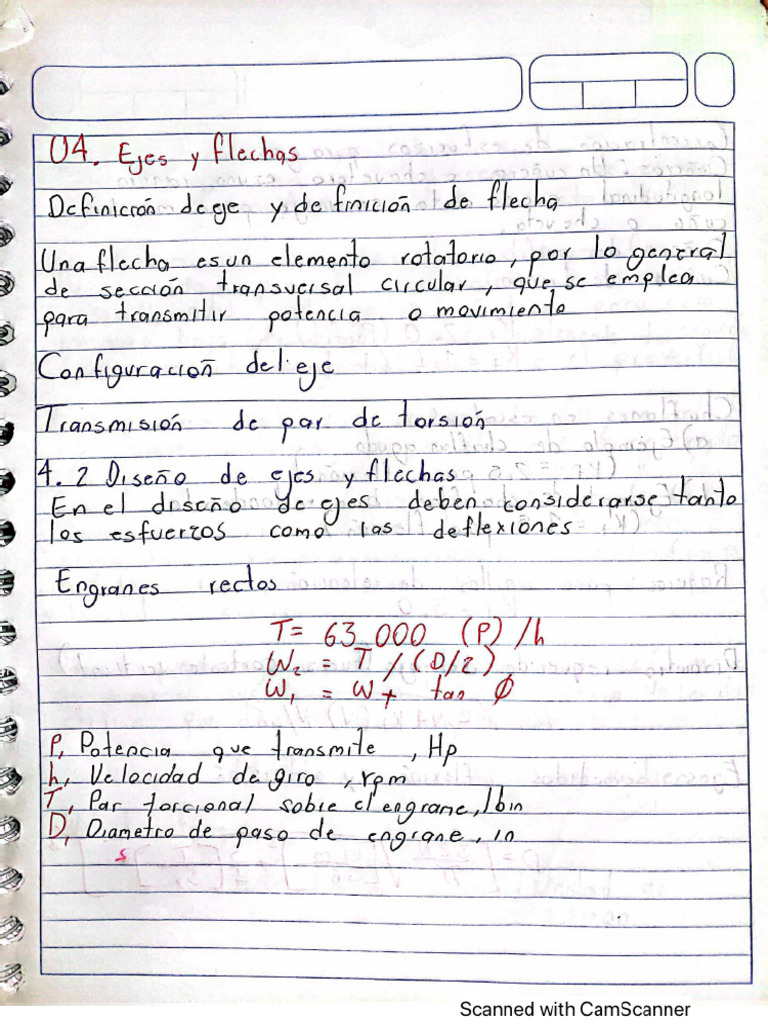 U4. Ejes y flechas
Definición de eje y definición de flecha
Una flecha es un elemento rotatorio, por lo general
de sección transversal circular, que se emplea
para transmitir potencia o movimiento
Configuración del eje
Transmisión de par de torsión
4.2 Diseño de ejes y flechas
En el diseño de ejes deben considerarse tanto
los esfuerzos como las deflexiones
Engranes rectos
T = 63 000 (P) /h
W2 = T / (D/2)
W1 = W+ tan Ø
P, Potencia que transmite, Hp
h, Velocidad de giro, rpm
T, Par torcional sobre el engrane, lbin
D, Diametro de paso de engrane, in
Scanned with CamScanner